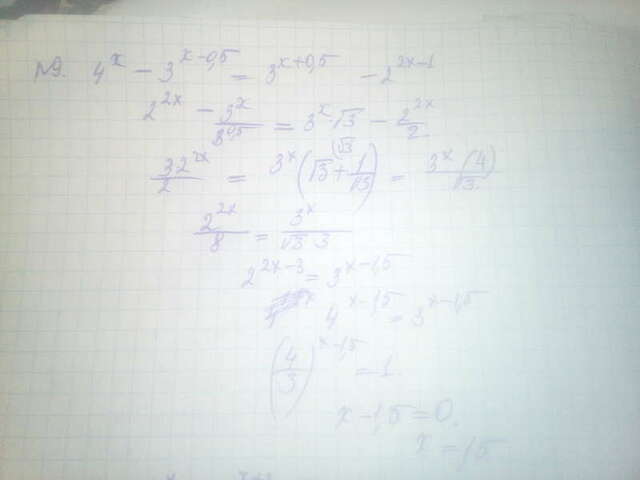 №9. 4^x - 3^(x-0,5) = 3^(x+0,5) - 2^(2x-1)
2^(2x) - 3^x/3^(0,5) = 3^x √3 - 2^(2x)/2
3 2^(2x)/2 = 3^x (√3 + 1/√3) = 3^x (4)/√3
2^(2x)/8 = 3^x/(√3 3)
2^(2x-3) = 3^(x-1,5)
4^(x-1,5) = 3^(x-1,5)
(4/3)^(x-1,5) = 1
x - 1,5 = 0.
x = 1,5